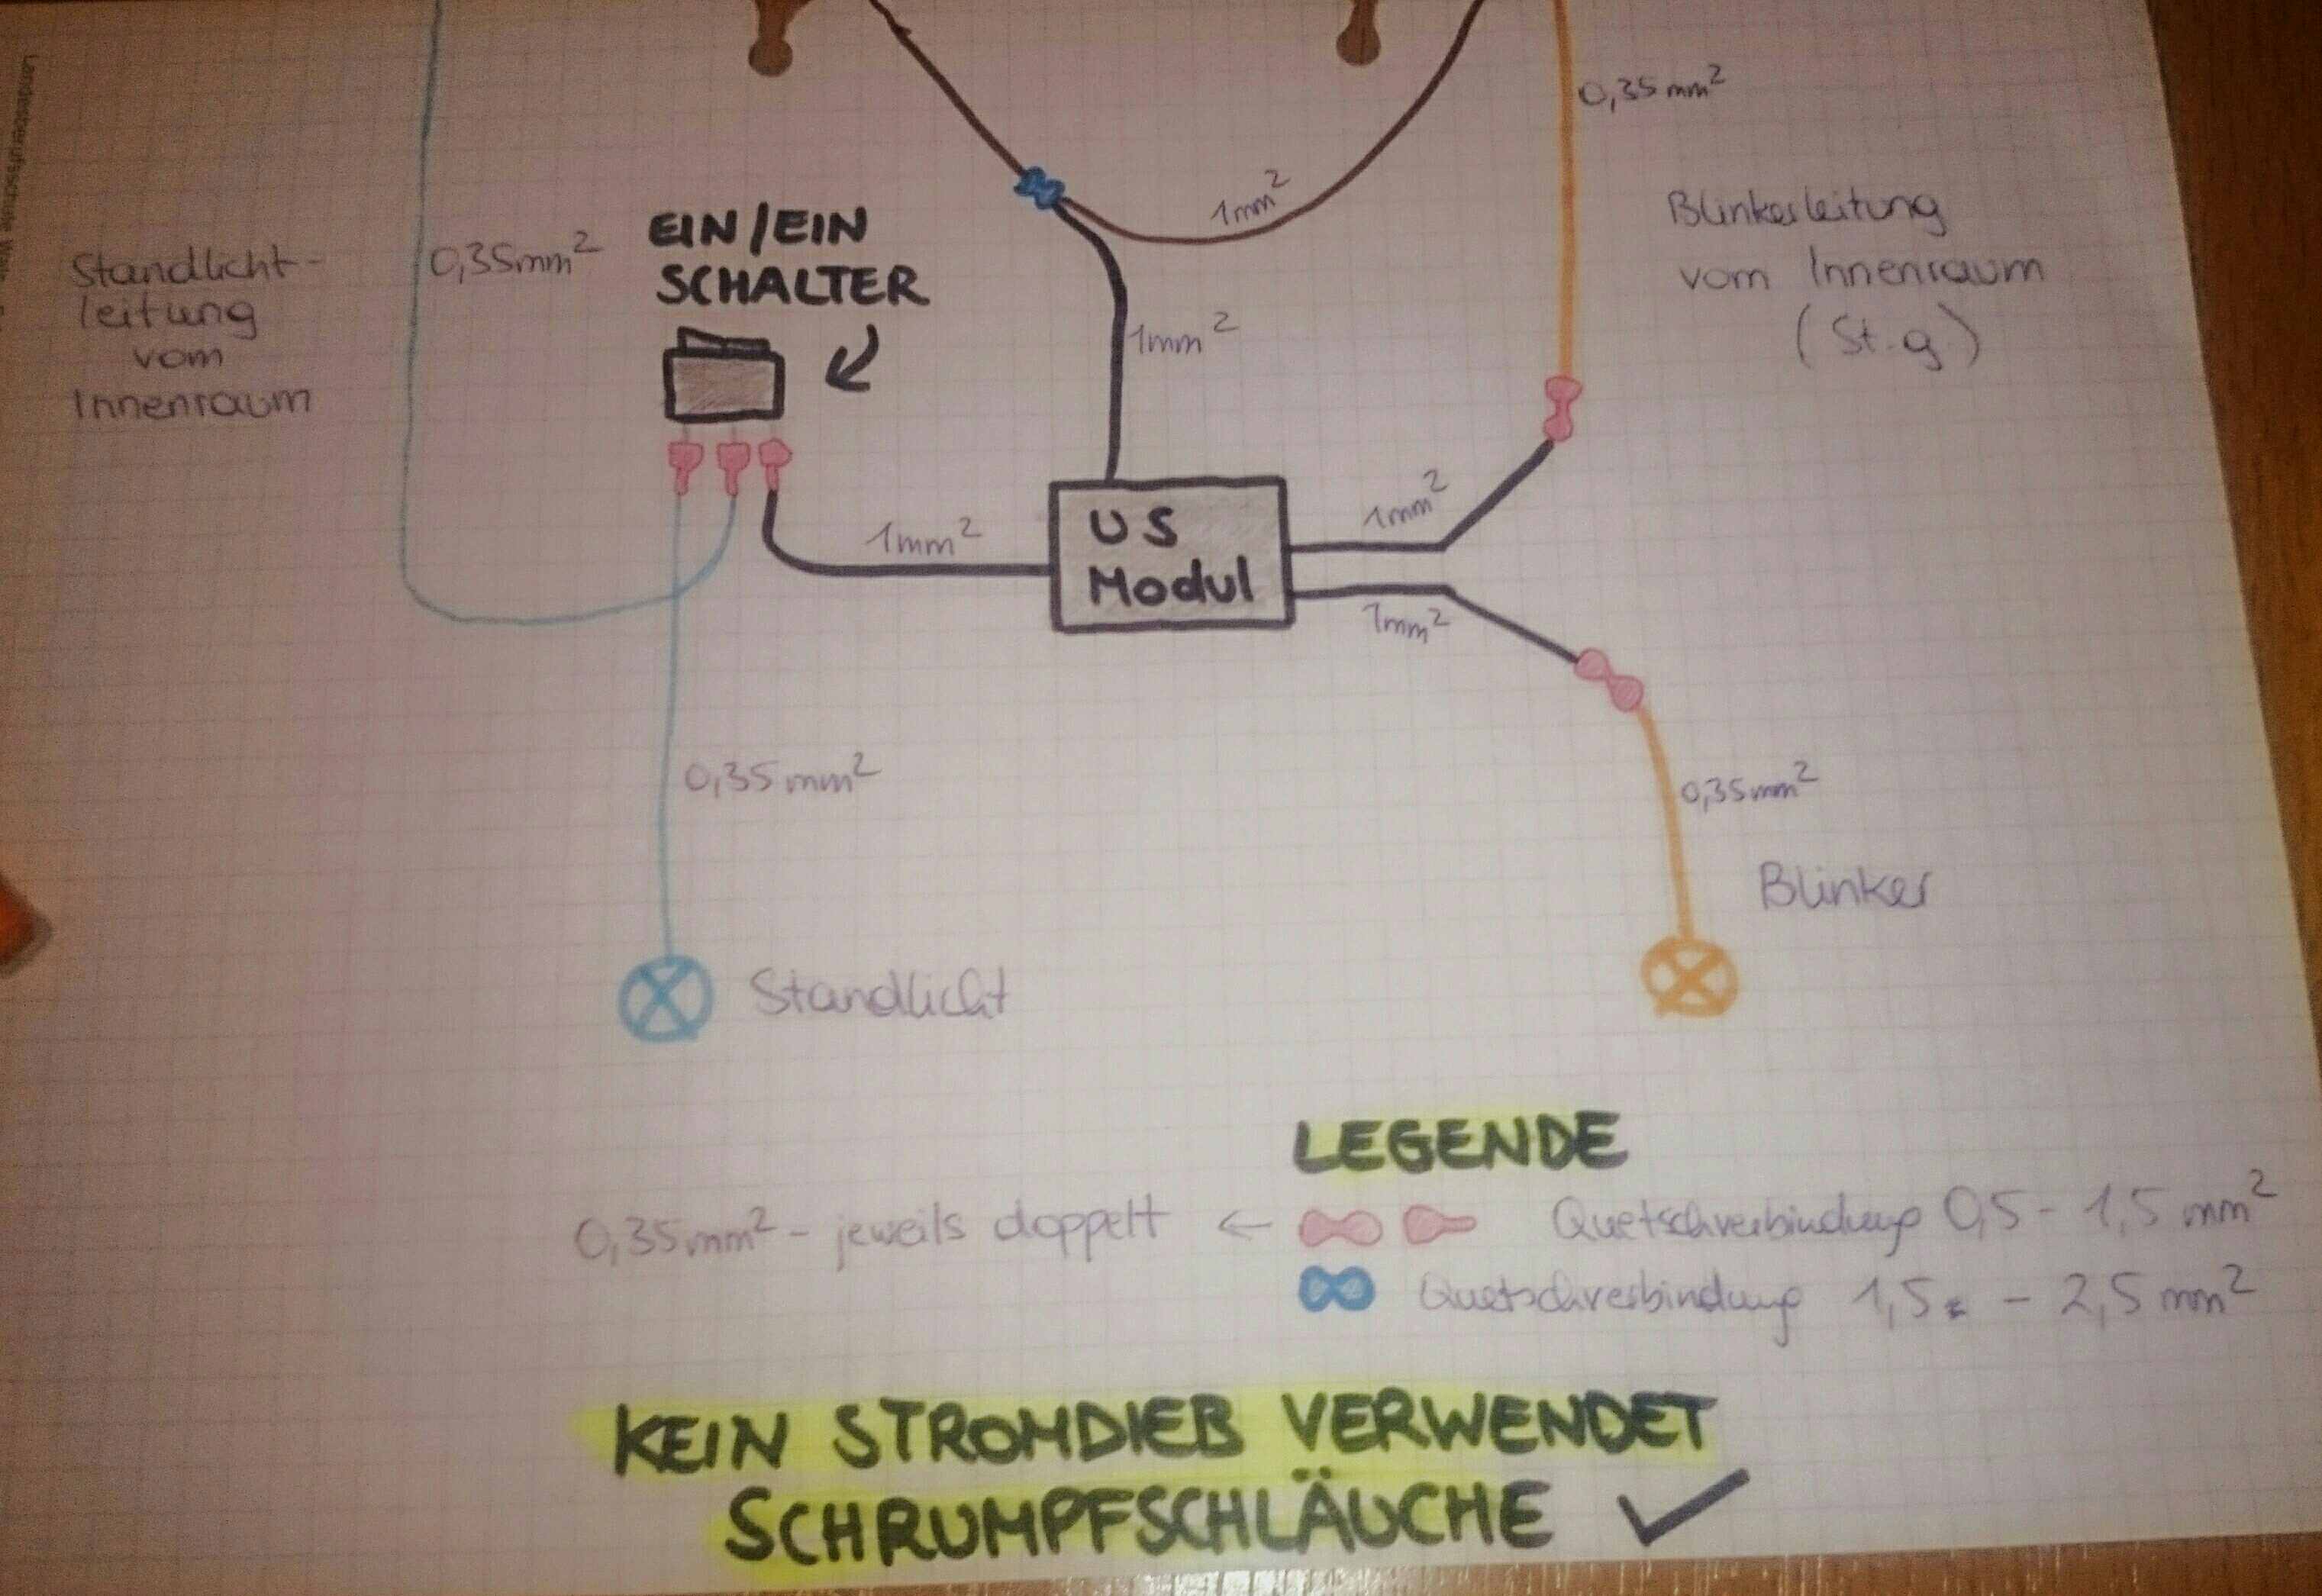 0,35mm²
1mm²
Blinkerleitung
vom Innenraum
(St.g)
Standlicht-
leitung
vom
Innenraum
0,35mm²
EIN/EIN
SCHALTER
1mm²
1mm²
US
Modul
1mm²
1mm²
0,35mm²
0,35mm²
Blinker
Standlicht
LEGENDE
0,35mm² - jeweils doppelt ← Quetschverbindung 0,5 - 1,5 mm²
Quetschverbindung 1,5 - 2,5 mm²
KEIN STROMDIEB VERWENDET
SCHRUMPFSCHLÄUCHE ✓